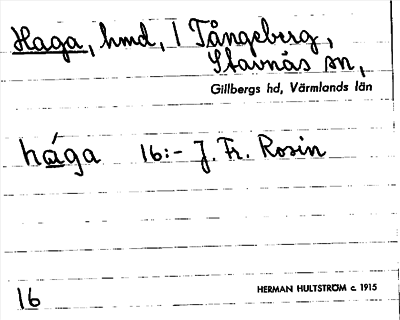 Haga, hmd, 1 Tångeberg,
Stavnäs sn,
Gillbergs hd, Värmlands län
hága 16:- J. Fr. Rosin
16
HERMAN HULTSTRÖM c. 1915